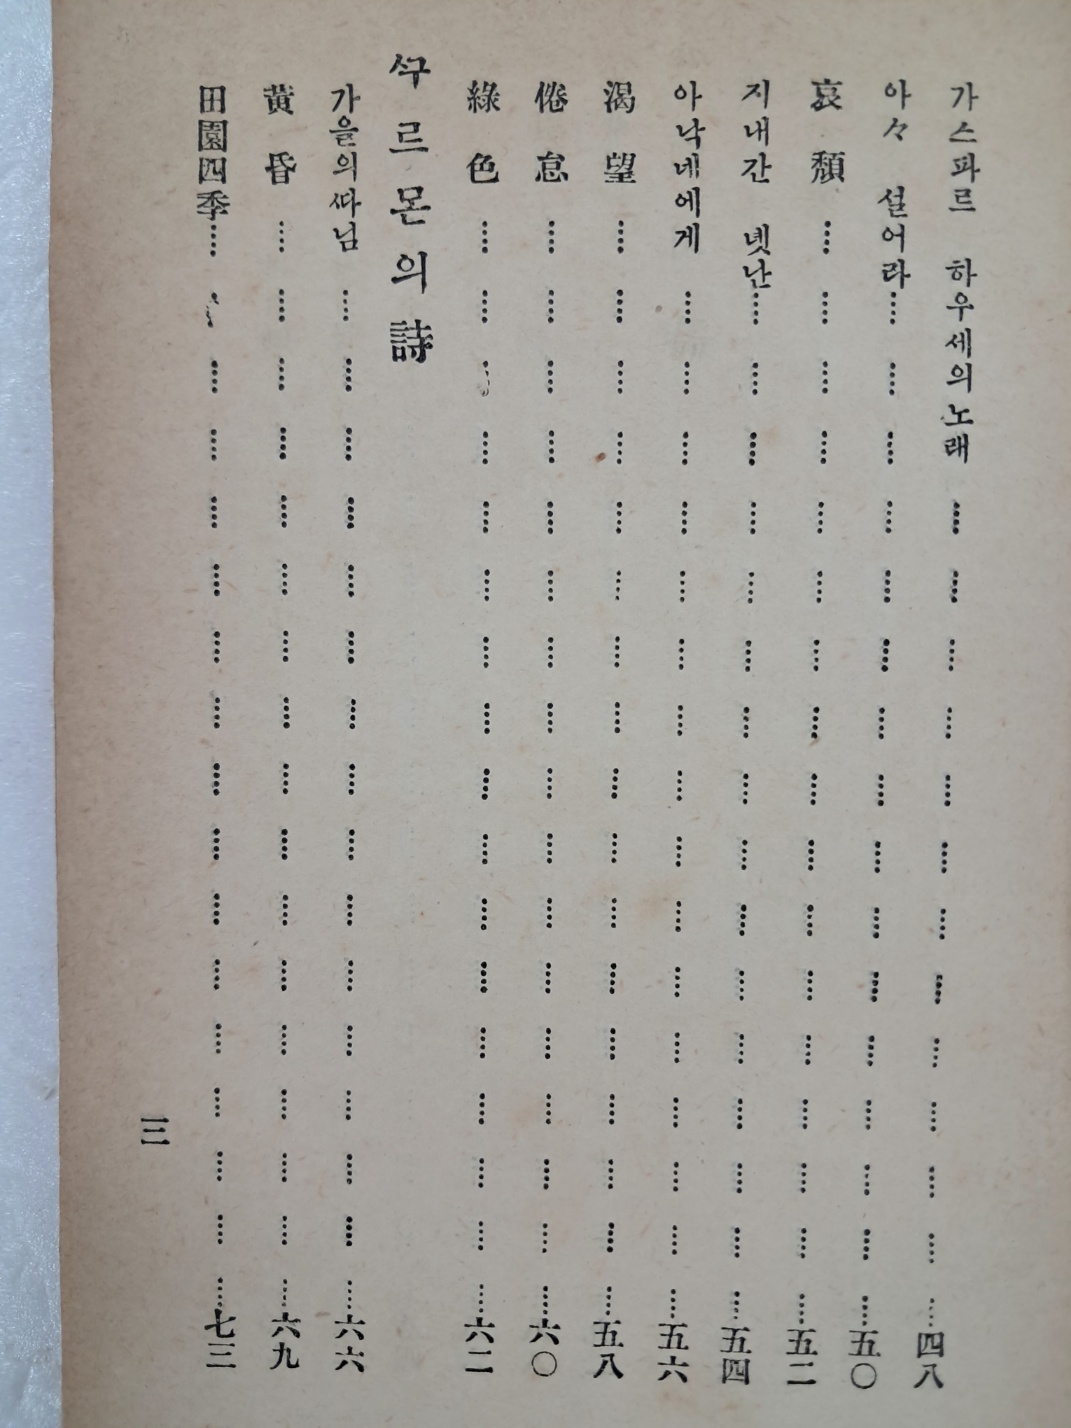 가스파르 하우세의노래 四八
아々 설어라 五〇
哀頹 五二
지내간 녯난 五四
아낙네에게 五六
渴望 五八
倦怠 六〇
綠色 六二
ᄭᅮ르몬의詩
가을의ᄯᅡ님 六六
黃昏 六九
田園四季 七三
三